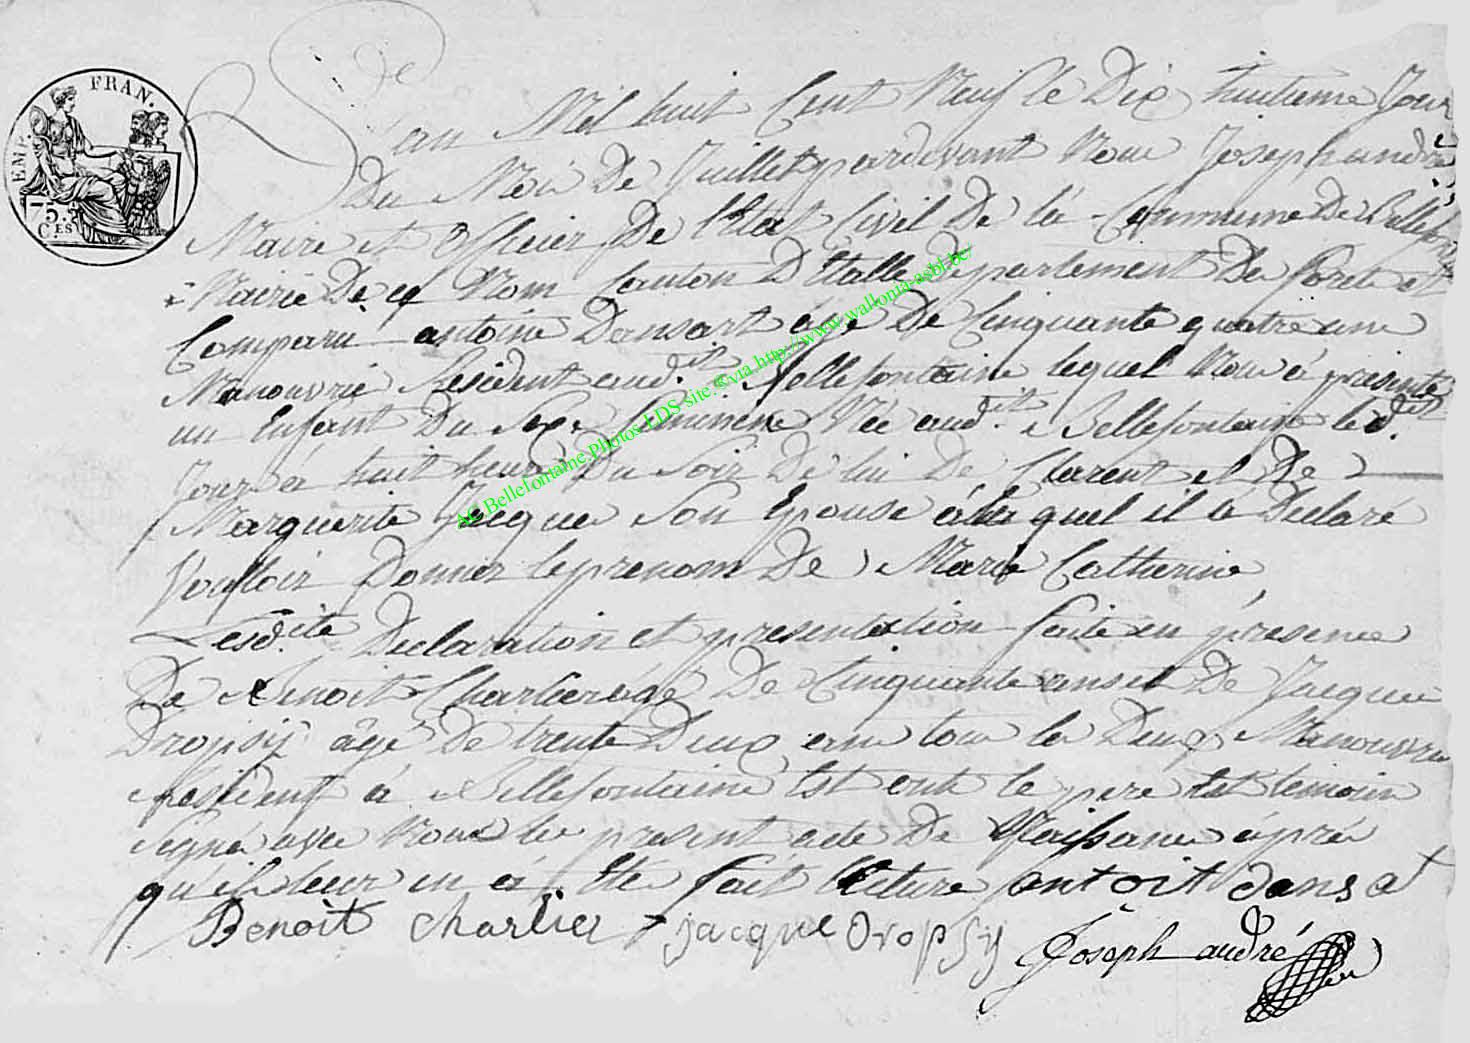 EMP. FRAN.
75. C.ES
De
L'an Mil huit Cent Neuf le Dix huitieme Jour
Du Moi De Juillet pardevant Nous Joseph andré
Maire et Officier De l'Etat Civil De la Commune De Bellefontaine
Mairie De ce Nom Canton D'Etalle Departement Des Forets est
Comparu antoine Dansart agé De Cinquante quatre ans
Manouvrié Resident aud.it Bellefontaine lequel Nous à présenté
un Enfant Du Sexe feminine Née aud.it Bellefontaine led.it
Jour à huit heures Du soir De lui De Clarent et De
Marguerite Jacques Son Epouse à la quel il à Declaré
Vouloir Donner le prenom De Marie Catherine,
Lesd.ite Declaration et presentation faite en présence
De Benoit Charlier agé De Cinquante ans et De Jacque
Dropsij âgé De trente Deux ans tous les Deux Manouvrié
Resident à Bellefontaine Est ont le pere est temoin
Signé avec Nous le present acte De Naissance après
qu'il leur en à Eté fait lecture entoit dansat
Benoit charlier jacque Dropsy Joseph andré
AC Bellefontaine.Photos LDS site.©via.http://www.wallonia-asbl.be/